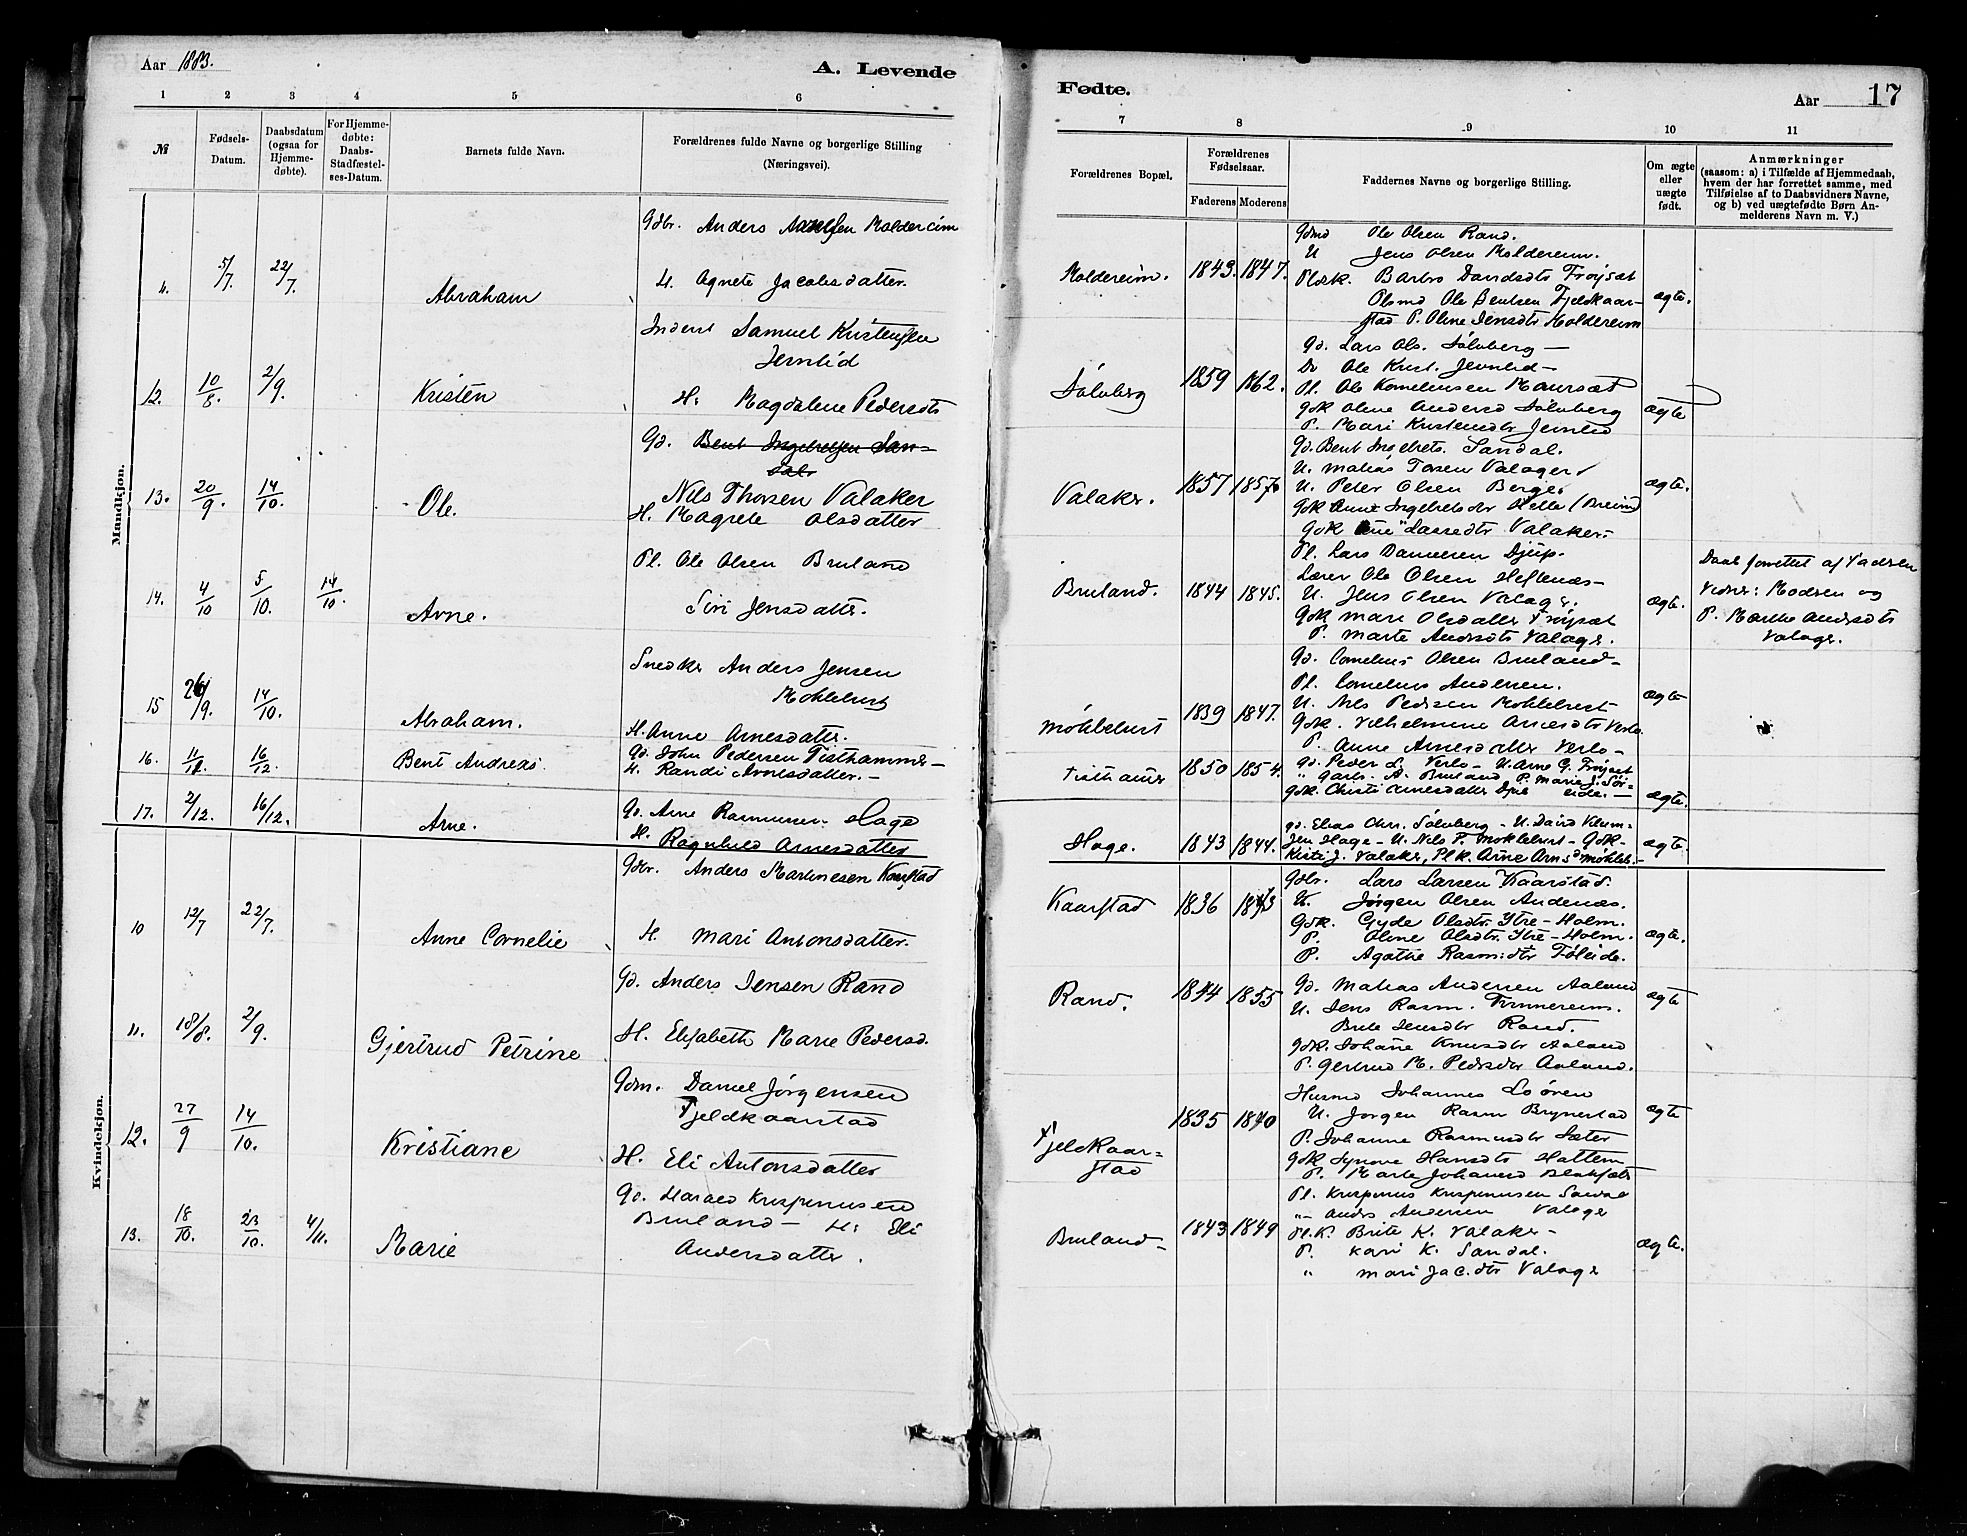 Aar 1883.
A. Levende
1 2 3 4 5 6
№
Fødsels-
Datum.
Daabsdatum
(ogsaa for
Hjemme-
døbte).
For Hjemme-
døbte:
Daabs-
Stadfæstel-
ses-Datum.
Barnets fulde Navn.
Forældrenes fulde Navne og borgerlige Stilling
(Næringsvei).
Mandkjøn.
Gdbr. Anders Moldereim
11. 5/7 22/7 Abraham
H. Agnete Jacobsdatter.
Inderst Samuel Kristensen
Jemlid
12. 10/8 2/9. Kristen
H. Magdalene Pedersdtr
Gd. Bent Ingebretsen San-
dal
13. 20/9 14/10. Ole.
Nils Thorsen Valaker
H. Magrete Olsdatter
Pl. Ole Olsen Bruland
14. 4/10 5/10. 14/10. Arne.
Siri Jensdatter.
Snedker Anders Jensen
Møklebust
15 26/9. 14/10. Abraham.
H. Anne Arnesdatter.
16. 16/12. Bent Andreas.
Gd. John Pedersen Tisthammer
H. Randi Arnesdatter.
17. 2/12. 16/12. Arne.
Gd. Arne Rasmussen Hage
H. Ragnhild Arnesdatter
Kvindekjøn.
Gdbr. Anders Martinesen Kaarstad
10 12/7 22/7. Anne Cornelie
H. Mari Antonsdatter.
Gd. Anders Jensen Rand
11. 18/8. 2/9. Gjertrud Petrine
H. Elisabeth Marie Pedersd.
Gdm. Daniel Jørgensen
Fjeldkaarstad
12. 27/9 14/10. Kristiane
H. Eli Antonsdatter
Gd. Harald Krispinusen
Bruland — H. Eli
13. 18/10. 23/10. 4/11. Marie
Andersdatter.
Fødte.
Aar 17
7 8 9 10 11
Forældrenes Bopæl.
Forældrenes
Fødselsaar.
Faderens Moderens
Faddernes Navne og borgerlige Stilling.
Om ægte
eller
uægte
født.
Anmærkninger
(saasom: a) i Tilfælde af Hjemmedaab,
hvem der har forrettet samme, med
Tilføielse af to Daabsvidners Navne,
og b) ved uægtefødte Børn An-
melderens Navn m. V.)
Gdmd Ole Olsen Rand.
U Jens Olsen Moldereim.
Moldereim. 1843. 1847. Barbro Frøjsæt
Ole Bentsen Fjeldkaar-
ægte.
stad P. Oline Jensdtr Moldereim
Gd. Lars Ols. Sølvberg —
Do Ole Krist. Jemlid —
Sølvberg 1859 1862. Pl. Ole Korneliussen Maursæt
Gdk Oline Andersd Sølvberg
ægte
P. Mari Kristensdtr Jemlid
Gd. Bent Ingebrets. Sandal.
U. Matias Torsen Valager
Valaker. 1857 U. Peter Olsen Berge. ægte.
Gdk Anne Ingebretsdtr Helle (Breim)
Gdk Ane Lassedtr Valaker.
Pl. Lars Danielsen Djup.
Lærer Ole Olsen Heftenæs —
Bruland. 1844 1845. U. Jens Olsen Valager.
Gdk Mari Olsdatter Frøjsæt
ægte.
P. Marte Andersdtr Valager.
Daab forrettet af Faderen
Vidner: Modren og
P. Marthe Andersdtr
Valager.
Gd. Cornelius Olsen Bruland —
Pl. Cornelius Andersen.
ægte
U. Nils Pedersen Møklebust
Møklebust 1839 1847. Gdk. Vilhelmine Arnesdtr Verlo
P. Anne Arnesdatter Verlo —
Tisthamer 1850 1854. Gd. Peder L. Verlo — U. Arne G. Frøjset
A. Bruland P. Marie J. Sør-
Gdk. Christi Arnesdatter eide. — ægte.
Gd. Elias Chr. Sølvberg — U. David Villum-
Hage. 1843 1844. sen Hage — U. Nils P. Møklebust — Gdk — ægte.
Kirsti J. Valaker, Plk. Arne Møkleb.
Gdbr. Lars Larsen Kaarstad.
Kaarstad 1836 U. Jørgen Olsen Andenæs.
Gdk. Gyde Olsdtr. Ytre-Holm.
P. Oline Olsdtr. Ytre-Holm. ægte.
P. Agathe Rasm:dtr Føleide.
Gd. Matias Andersen Aaland
Rand. 1844 1855 U. Jens Rasm. ægte
Brite Jensdtr Rand.
Gdk. Johane Knudsdtr Aaland
P. Gertrud M. Pedersdtr Aaland.
Husmd Johannes Loøren
1835 1840 U. Jørgen Rasm Brynestad ægte
Fjeldkaar-
stad
P. Johanne Rasmusdtr Sæter
Gdk Synove Hansdtr Hattem
P. Marte Johannesd
Pl. Krispinus Krispinusen
„ Anders Andersen Valage
Bruland — 1843 1849 Pl.k. Brite K. Valaker —
P. Kari K. Sandal. ægte.
„ Mari Jac.dtr Valage